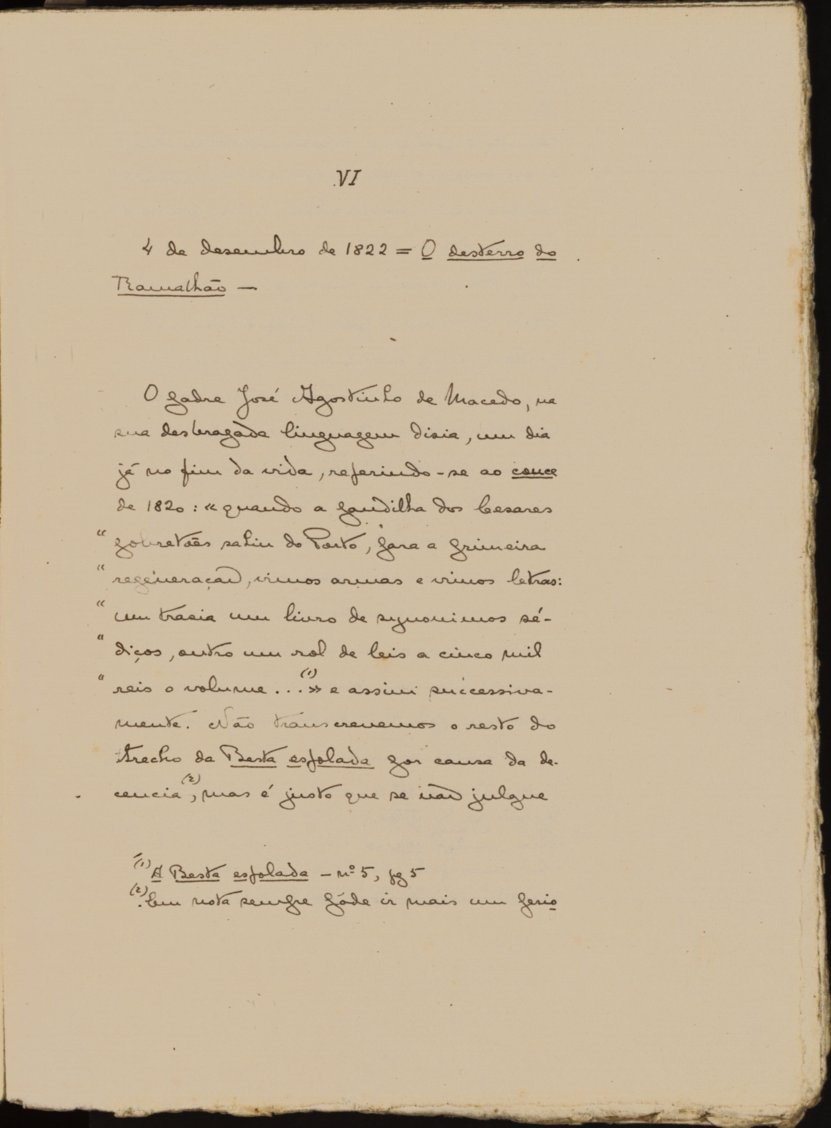 VI
4 de desembro de 1822 = O desterro do
Ramalhão —
O padre José Agostinho de Macedo, na
sua desbragada linguagem disia, um dia
já no fim da vida, referindo-se ao couce
de 1820: « quando a pandilha dos Cesares
“ gobretões sahiu do Porto, para a primeira
“ regeneração, vimos armas e vimos letras:
“ um trasia um livro de synonimos sé-
“ diços, outro um rol de leis a cinco mil
“ reis o volume ...(1)» e assim successiva-
mente. Não transcrevemos o resto do
trecho da Besta esfolada por causa da de-
cencia(2), mas é justo que se não julgue
(1) A Besta esfolada — nº 5, pg 5
(2) Em nota sempre póde ir mais um perio